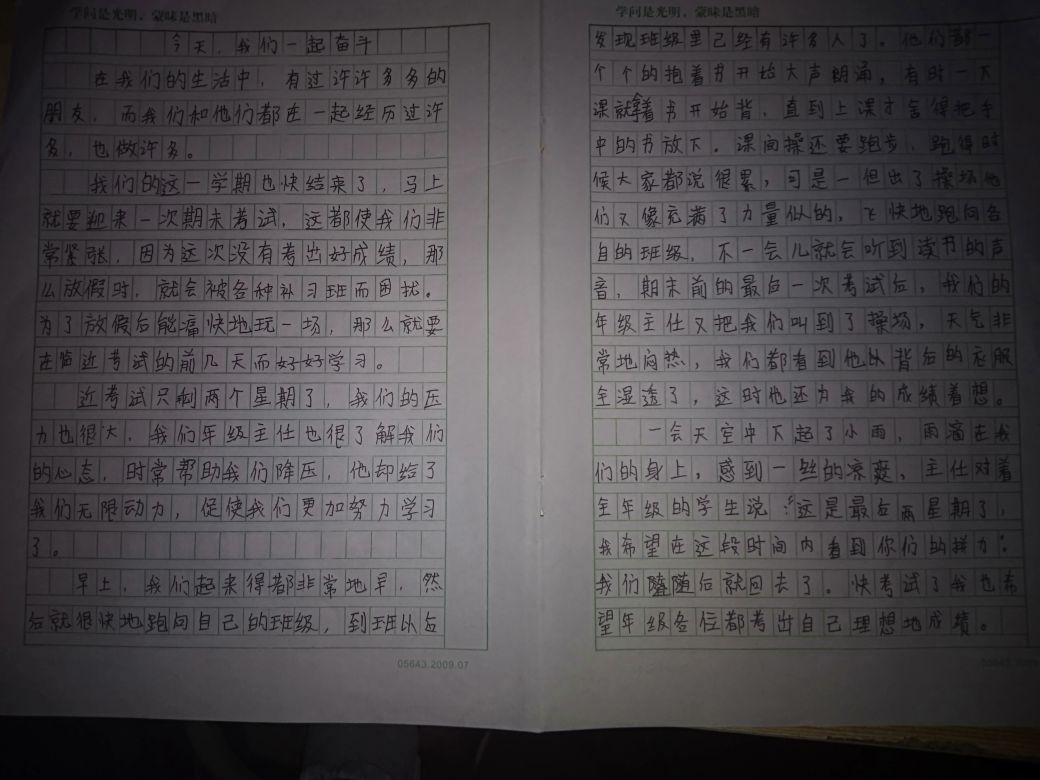 学问是光明，蒙昧是黑暗
今天，我们一起奋斗
在我们的生活中，有过许许多多的
朋友，而我们和他们都在一起经历过许
多，也做许多。
我们的这一学期也快结束了，马上
就要迎来一次期末考试，这都使我们非
常紧张，因为这次没有考出好成绩，那
么放假时，就会被各种补习班而困扰。
为了放假后能痛快地玩一场，那么就要
在临近考试的前几天而好好学习。
近考试只剩两个星期了，我们的压
力也很大，我们年级主任也很了解我们
的心态，时常帮助我们降压，他却给了
我们无限动力，促使我们更加努力学习
了。
早上，我们起来得都非常地早，然
后就很快地跑向自己的班级，到班以后
05643.2009.07
学问是光明，蒙昧是黑暗
发现班级里已经有许多人了。他们都一
个个的抱着书开始大声朗诵，有时一下
课就拿着书开始背，直到上课才舍得把手
中的书放下。课间操还要跑步，跑得时
候大家都说很累，可是一但出了操场他
们又像充满了力量似的，飞快地跑向各
自的班级，不一会儿就会听到读书的声
音，期末前的最后一次考试后，我们的
年级主任又把我们叫到了操场，天气非
常地闷热，我们都看到他以背后的衣服
全湿透了，这时他还为我的成绩着想。
一会天空中下起了小雨，雨滴在我
们的身上，感到一丝的凉爽，主任对着
全年级的学生说：“这是最后两星期了，
我希望在这段时间内看到你们的拼力”。
我们随后就回去了。快考试了我也希
望年级各位都考出自己理想地成绩。